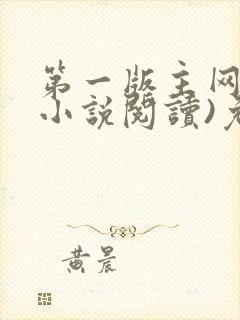 第一版主网
小說閱讀)
黄晨